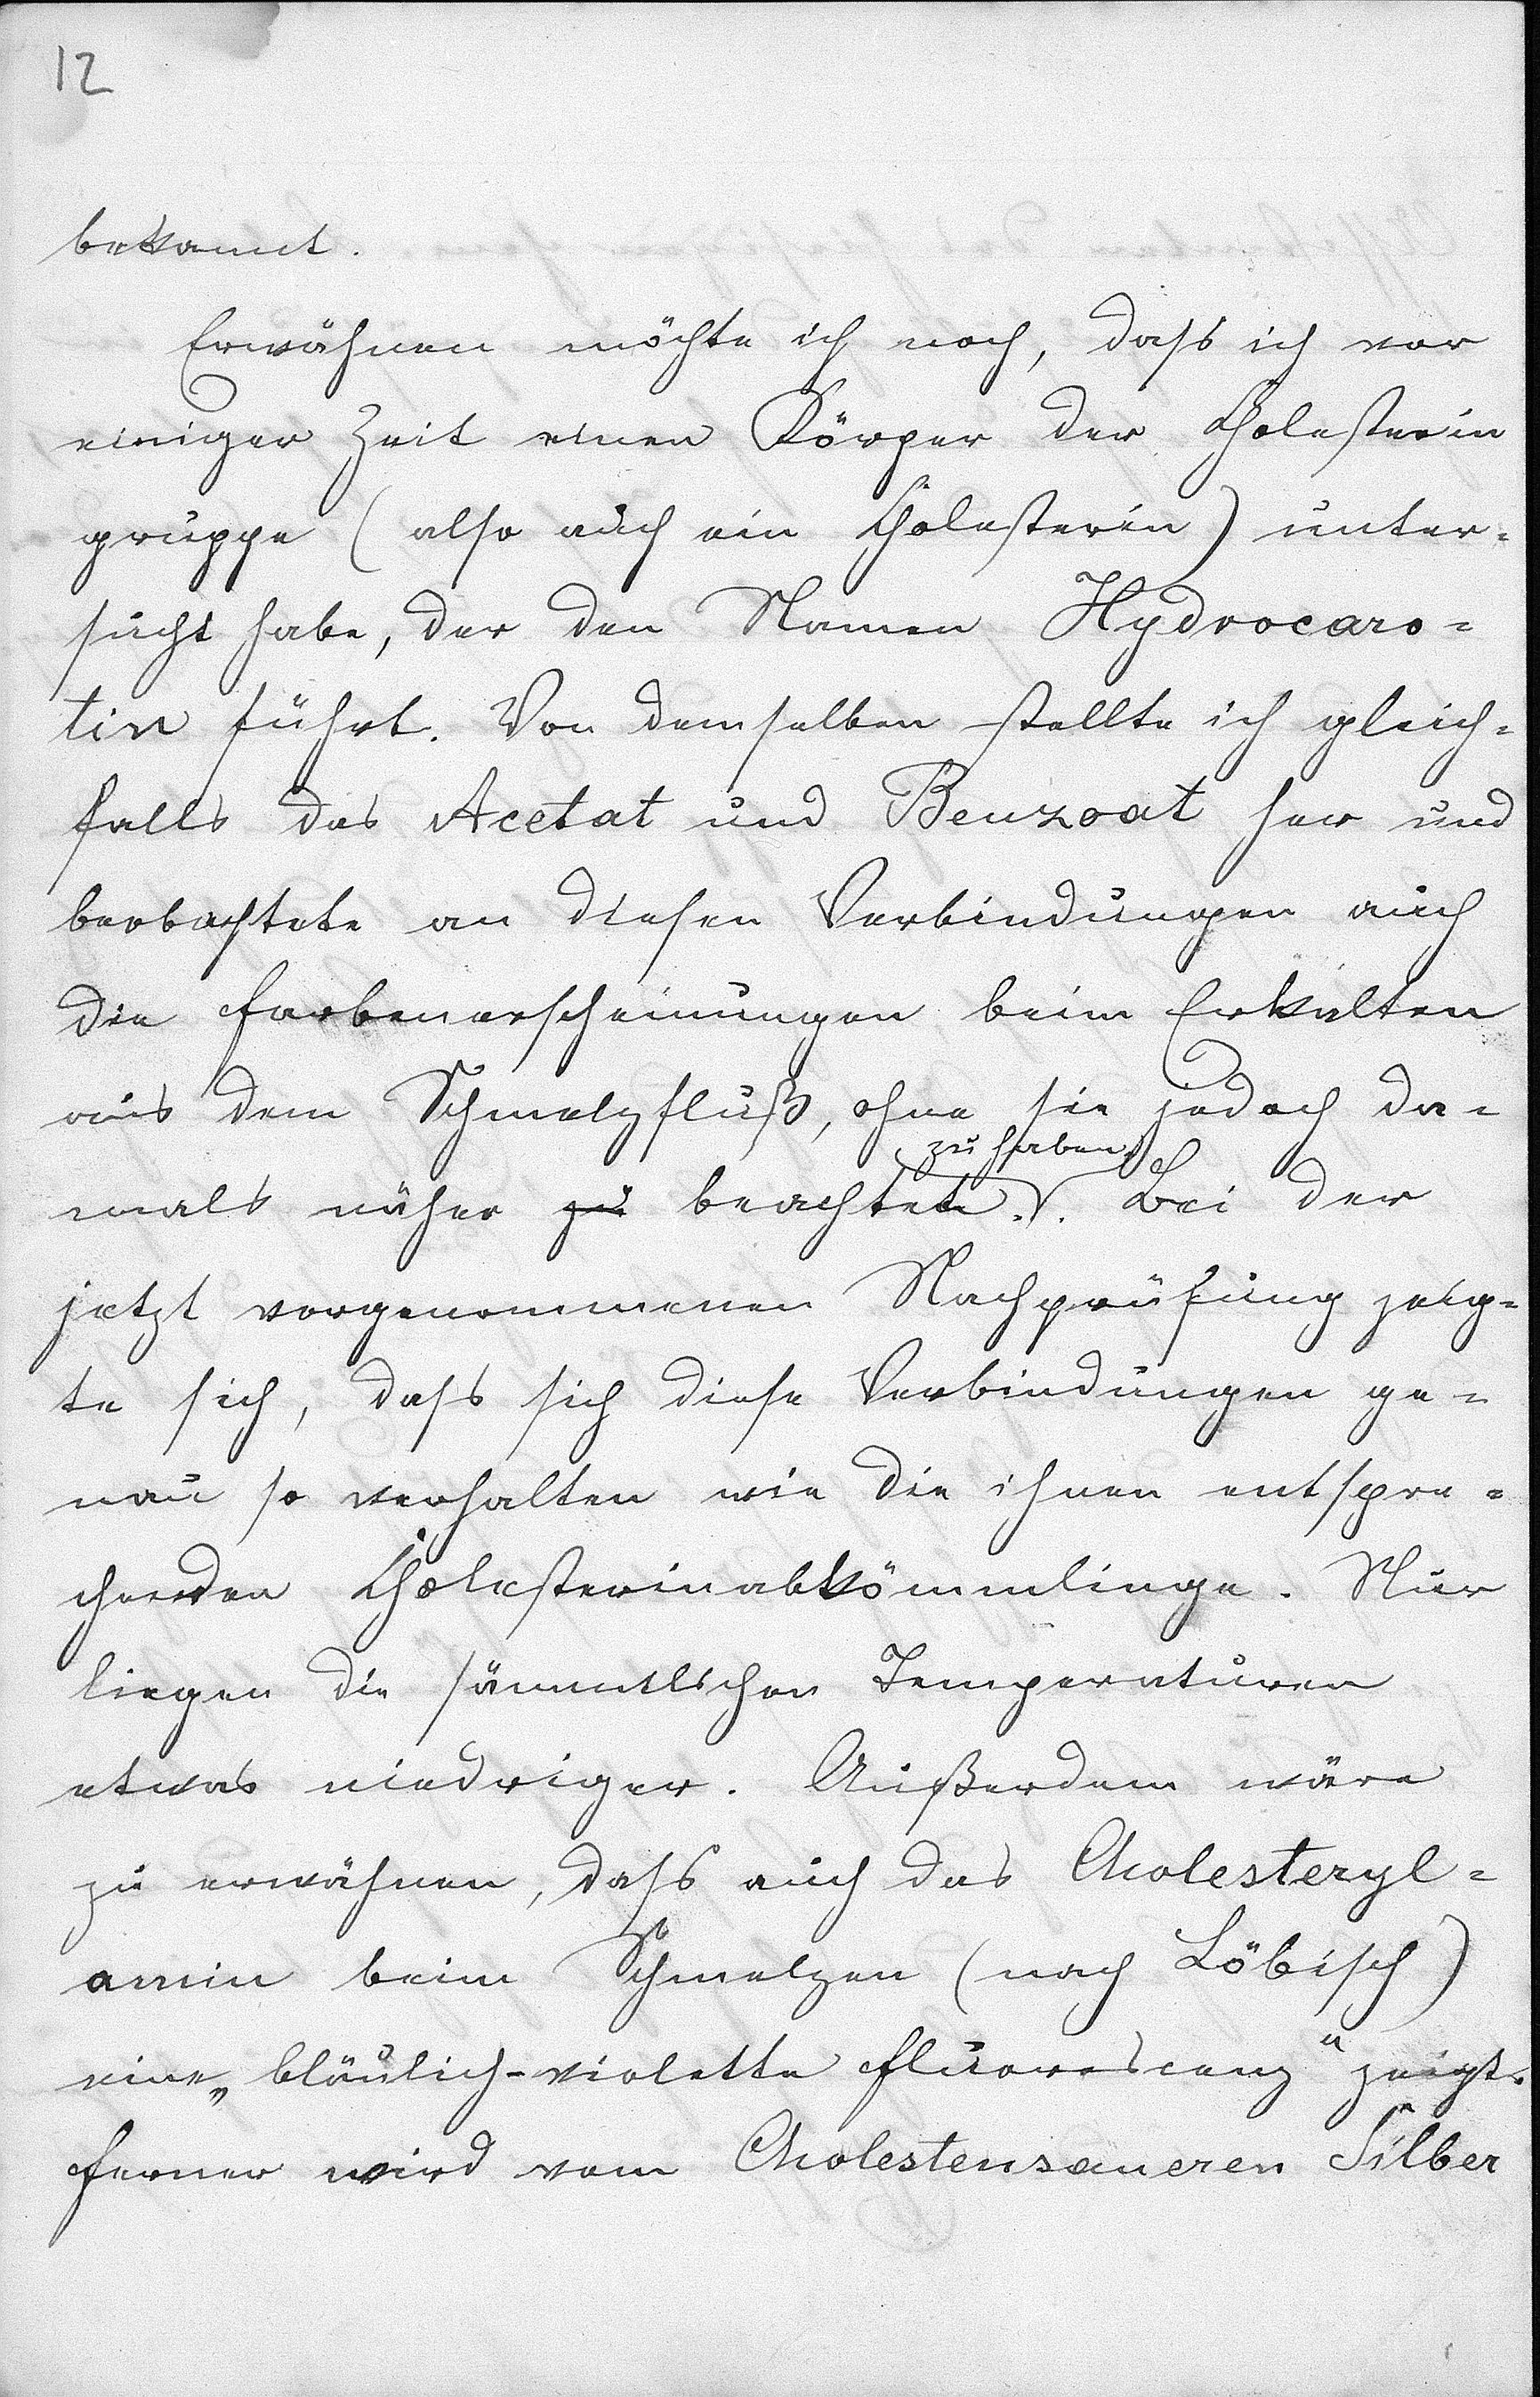 12
bekannt.
Erwähnen möchte ich noch, dass ich vor
einiger Zeit einen Körper der Cholesterin
gruppe (also auch ein Cholesterin) unter-
sucht habe, der den Namen Hydrocaro-
tin führt. Von demselben stellte ich gleich-
falls das Acetat und Benzoat her und
beobachtete an diesen Verbindungen auch
die Farbenerscheinungen beim Erkalten
aus dem Schmelzfluß, ohne sie jedoch da-
zu haben
mals näher zu beachtet. Bei der
jetzt vorgenommenen Nachprüfung zeig-
te sich, dass sich diese Verbindungen ge-
nau so verhalten wie die ihnen entspre-
chenden Cholesterinabkömmlinge. Nur
liegen die sämmtlichen Temperaturen
etwas niedriger. Außerdem wäre
zu erwähnen, dass auch das Cholesteryl-
amin beim Schmelzen (nach Löbisch)
eine „bläulich-violette Fluorescenz“ zeigt.
Ferner wird vom Cholestensaueren Silber